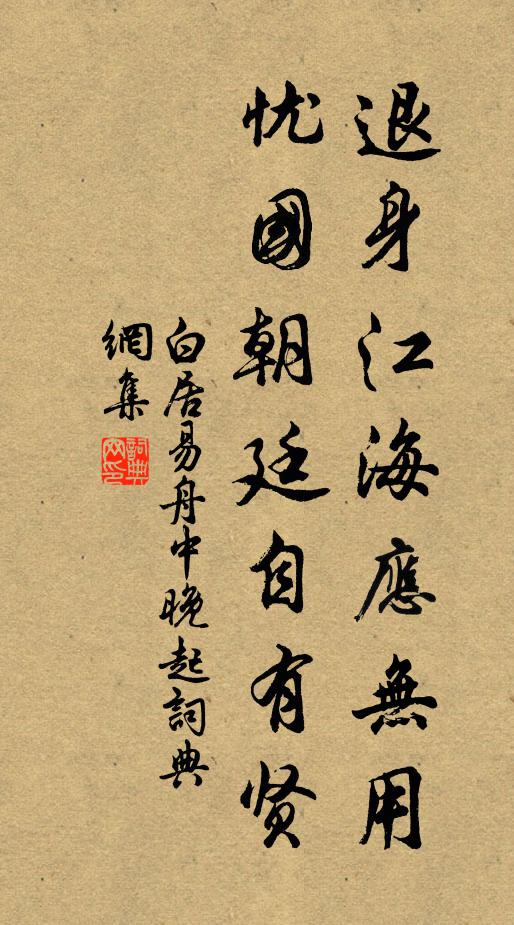 退身江海應無用
忧國朝廷自有贤
白居易舟中晚起詞典
網集
詞典网印